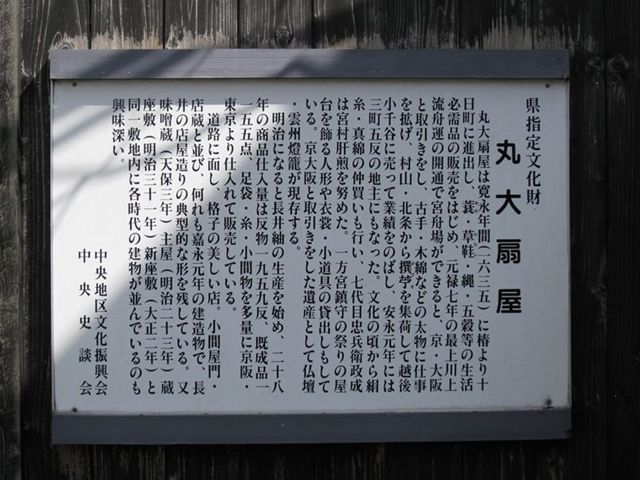 県指定文化財
丸大扇屋
丸大扇屋は寛永年間(一六三五)に椿より十
日町に進出し、蓑・草鞋・縄・五穀等の生活
必需品の販売をはじめ、元禄七年の最上川上
流舟運の開通で宮舟場ができると、京・大阪
と取引きをし、古手・木綿などの太物に仕事
を拡げ、村山・北条から撰苧を集荷して越後
小千谷に売って業績をのばし、安永元年には
三町五反の地主にもなった。文化の頃から絹
糸・真綿の仲買いも行い、七代目忠兵衛政成
は宮村肝煎を努めた。一方宮鎮守の祭りの屋
台を飾る人形や衣裳・小道具の貸出しもして
いる。京大阪と取引きをした遺産として仏壇
・雲州燈籠が現存する。
明治になると長井紬の生産を始め、二十八
年の商品仕入量は反物一九五九反、既成品一
一五五点、足袋・糸・小間物を多量に京阪・
東京より仕入れて販売している。
道路に面し、格子の美しい店。小間屋門・
店蔵と並び、何れも嘉永元年の建造物で、長
井の店屋造りの典型的な形を残している。又
味噌蔵(天保三年)主屋(明治二十三年)蔵
座敷(明治三十一年)新座敷(大正二年)と
同一敷地内に各時代の建物が並んでいるのも
興味深い。
中央地区文化振興会
中央史談会